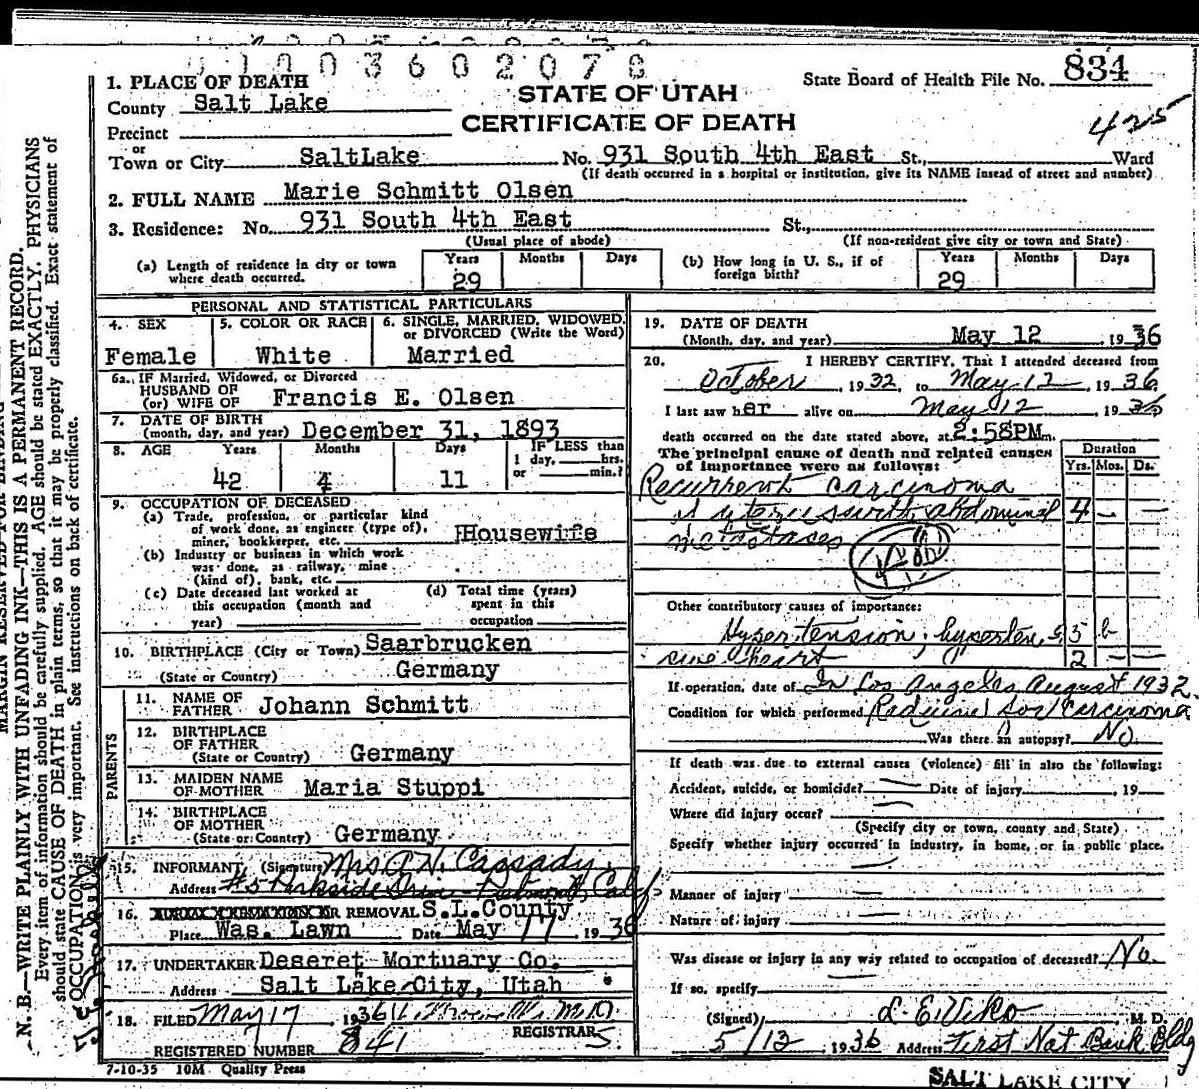 1 1 0 0 3 6 0 2 0 7 8
1. PLACE OF DEATH
County Salt Lake
Precinct
or
Town or City SaltLake No. 931 South 4th East St., Ward
(If death occurred in a hospital or institution, give its NAME instead of street and number)
STATE OF UTAH
CERTIFICATE OF DEATH
State Board of Health File No. 834
425
2. FULL NAME Marie Schmitt Olsen
3. Residence: No. 931 South 4th East St.,
(Usual place of abode) (If non-resident give city or town and State)
(a) Length of residence in city or town where death occurred. Years 29 Months Days
(b) How long in U. S., if of foreign birth? Years 29 Months Days
PERSONAL AND STATISTICAL PARTICULARS
4. SEX Female
5. COLOR OR RACE White
6. SINGLE, MARRIED, WIDOWED, or DIVORCED (Write the Word) Married
6a. IF Married, Widowed, or Divorced
HUSBAND OF
(or) WIFE OF Francis E. Olsen
7. DATE OF BIRTH
(month, day, and year) December 31, 1893
8. AGE Years 42 Months 4 Days 11
IF LESS than
1 day, hrs.
or min.?
9. OCCUPATION OF DECEASED
(a) Trade, profession, or particular kind
of work done, as engineer (type of),
miner, bookkeeper, etc. Housewife
(b) Industry or business in which work
was done, as railway, mine
(kind of), bank, etc.
(c) Date deceased last worked at
this occupation (month and
year)
(d) Total time (years)
spent in this
occupation
10. BIRTHPLACE (City or Town) Saarbrucken
(State or Country) Germany
PARENTS
11. NAME OF
FATHER Johann Schmitt
12. BIRTHPLACE
OF FATHER
(State or Country) Germany
13. MAIDEN NAME
OF MOTHER Maria Stuppi
14. BIRTHPLACE
OF MOTHER
(State or Country) Germany
15. INFORMANT (Signature) Mrs. A. N. Cassady
Address #5 Parkside Drive - Calif
16. R REMOVAL S.L.County
Place Was. Lawn Date May 17 1936
17. UNDERTAKER Deseret Mortuary Co.
Address Salt Lake City, Utah
18. FILED May 17, 1936 M.D.
REGISTRAR
REGISTERED NUMBER 841 S.
7-10-35 10M Quality Press
19. DATE OF DEATH
(Month, day, and year) May 12 1936
20. I HEREBY CERTIFY, That I attended deceased from
October, 1932, to May 12, 1936
I last saw her alive on May 12 1936
death occurred on the date stated above, at 2:58PM m.
The principal cause of death and related causes
of importance were as follows:
Duration
Yrs. Mos. Ds.
Recurrent carcinoma
of uterus with abdominal 4 - -
metastases
Other contributory causes of importance:
Hypertension, hyperten 5 6
sive heart 2 - -
If operation, date of In Los Angeles August 1932.
Condition for which performed Radium for Carcinoma
Was there an autopsy? No
If death was due to external causes (violence) fill in also the following:
Accident, suicide, or homicide? Date of injury , 19
Where did injury occur?
(Specify city or town, county and State)
Specify whether injury occurred in industry, in home, or in public place.
Manner of injury
Nature of injury
Was disease or injury in any way related to occupation of deceased? No.
If so, specify
(Signed) L. E. Viko M. D.
5/12 1936 Address First Nat Bank Bldg
SALT LAKE CITY
N. B.—WRITE PLAINLY WITH UNFADING INK—THIS IS A PERMANENT RECORD.
Every item of information should be carefully supplied. AGE should be stated EXACTLY. PHYSICIANS
should state CAUSE OF DEATH in plain terms, so that it may be properly classified. Exact statement of
OCCUPATION is very important. See instructions on back of certificate.